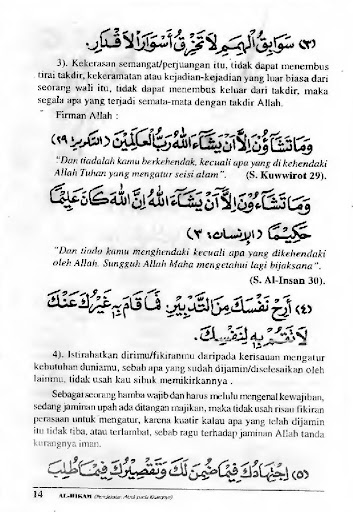 (٣) سَوَابِقُ الْهِمَمِ لَا تَخْرِقُ أَسْوَارَ الْأَقْدَارِ.
3). Kekerasan semangat/perjuangan itu, tidak dapat menembus
tirai takdir, kekeramatan atau kejadian-kejadian yang luar biasa dari
seorang wali itu, tidak dapat menembus keluar dari takdir, maka
segala apa yang terjadi semata-mata dengan takdir Allah.
Firman Allah :
وَمَا تَشَاؤُنَ إِلَّا أَنْ يَشَاءَ اللهُ رَبُّ الْعَالَمِيْنَ (التكوير: ٢٩)
"Dan tiadalah kamu berkehendak, kecuali apa yang di kehendaki
Allah Tuhan yang mengatur seisi alam". (S. Kuwwirot 29).
وَمَا تَشَاءُوْنَ إِلَّا أَنْ يَشَاءَ اللهُ إِنَّ اللهَ كَانَ عَلِيْمًا
حَكِيْمًا (الإنسان: ٣٠)
"Dan tiada kamu menghendaki kecuali apa yang dikehendaki
oleh Allah. Sungguh Allah Maha mengetahui lagi bijaksana".
(S. Al-Insan 30).
(٤) أَرِحْ نَفْسَكَ مِنَ التَّدْبِيْرِ، فَمَا قَامَ بِهِ غَيْرُكَ عَنْكَ
لَا تَقُمْ بِهِ لِنَفْسِكَ.
4). Istirahatkan dirimu/fikiranmu daripada kerisauan mengatur
kebutuhan duniamu, sebab apa yang sudah dijamin/diselesaikan oleh
lainmu, tidak usah kau sibuk memikirkannya .
Sebagai seorang hamba wajib dan harus melulu mengenal kewajiban,
sedang jaminan upah ada ditangan majikan, maka tidak usah risau fikiran
perasaan untuk mengatur, karena kuatir kalau apa yang telah dijamin
itu tidak tiba, atau terlambat, sebab ragu terhadap jaminan Allah tanda
kurangnya iman.
(٥) اِجْتِهَادُكَ فِيْمَا ضُمِنَ لَكَ وَتَقْصِيْرُكَ فِيْمَا طُلِبَ
14 AL-HIKAM